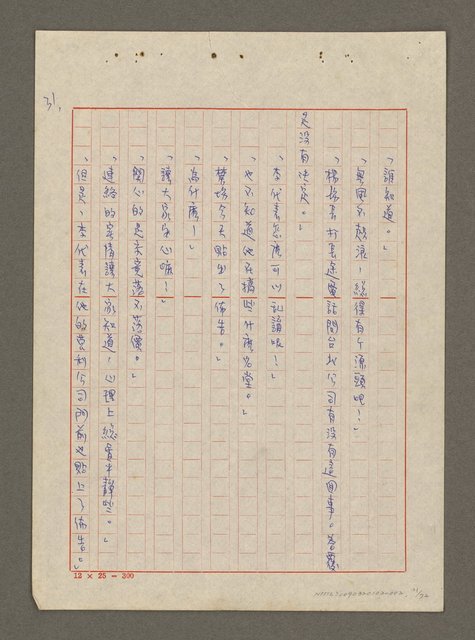 31,
「誰知道。」
「無風不起浪，總得有个源頭吧！」
「楊場長打長途電話問台北公司有沒有這回事。答覆
是沒有此意。」
「李代表怎麼可以亂講呢！」
「也不知道他在搞些什麼名堂。」
「楊場今天貼出了佈告。」
「為什麼！」
「讓大家安心嘛！」
「關心的是究竟落不落實。」
「連絡的室情讓大家知道，心理上總會平靜些。」
「但是，李代表在他的營利公司門前也貼上了佈告。」
12 × 25 = 300